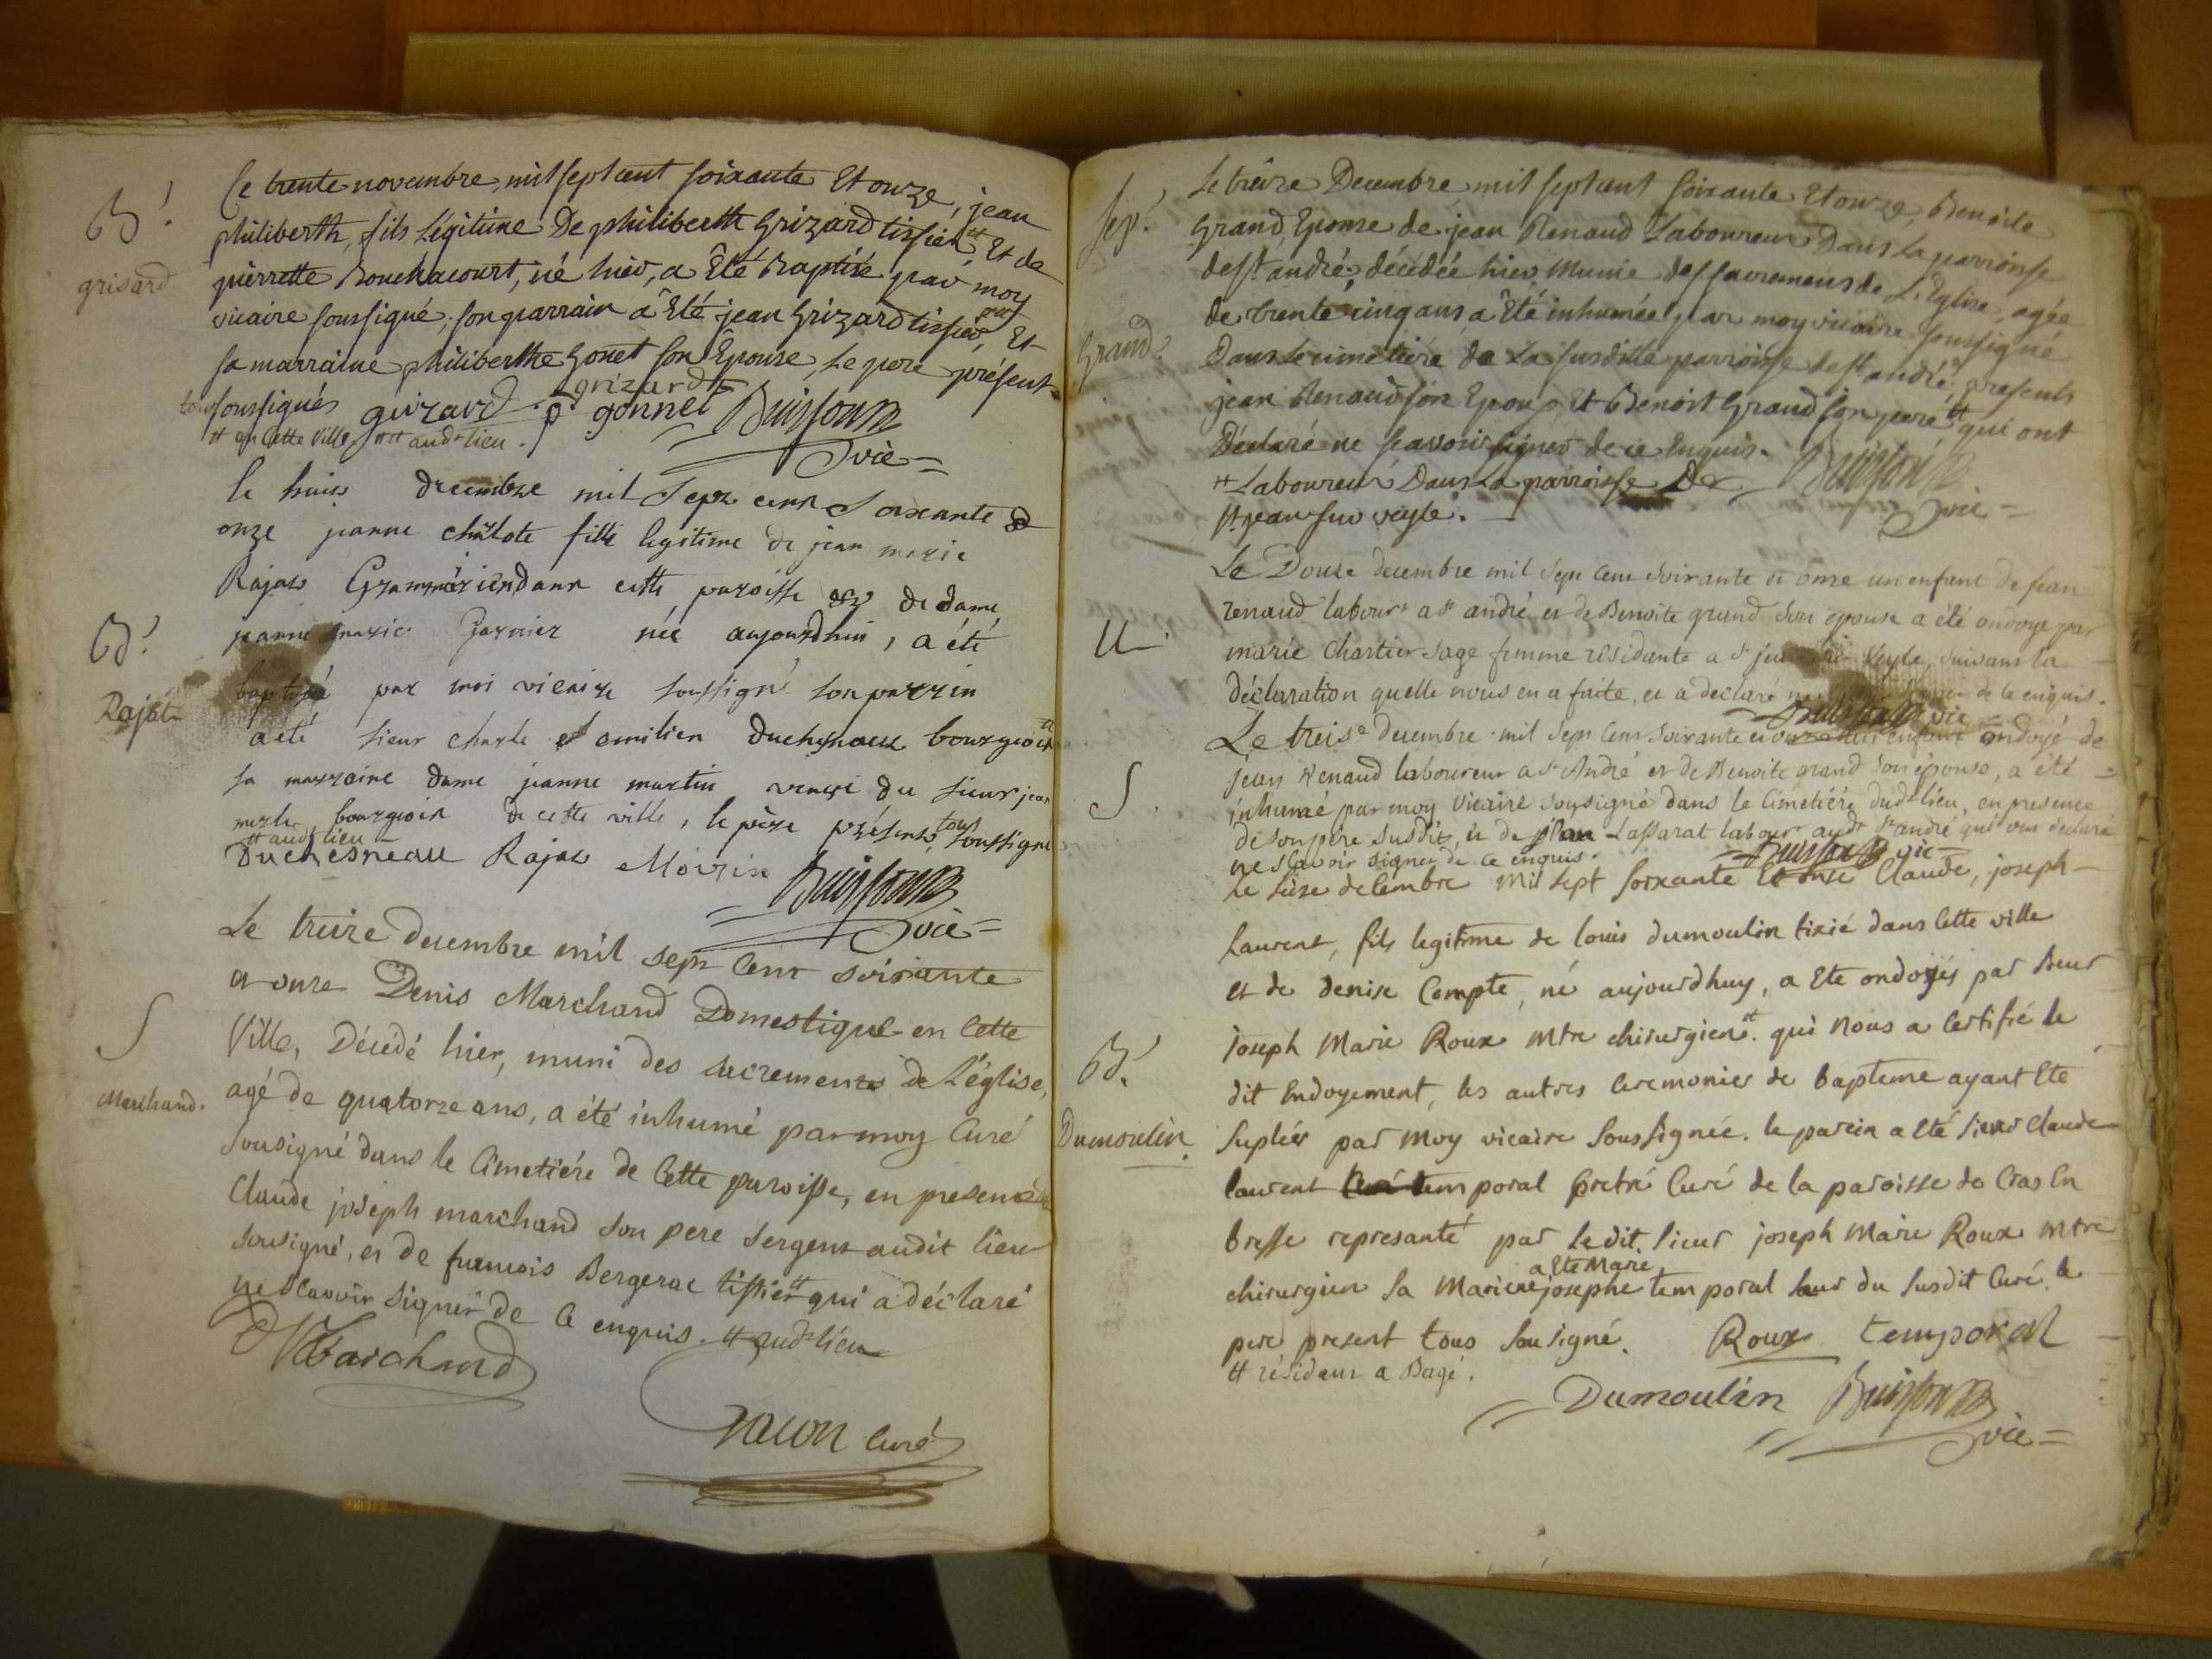 B!
grisard
Le trente novembre, mil sept cent soixante Et onze, jean
philiberth, fils Légitime De philiberth Grizard tissier # Et de
pierrette Bouchacourt, né hier, a Eté Baptisé par moy
vicaire soussigné, son parrain a Eté jean Grizard tissier, ## Et
sa marraine philiberthe Gonet son Epouse, Le pere présent
tous soussignés grizard grizard p. gonnet Buisson
# en cette ville ## aud. lieu. vic=
B!
Rajat
le huit decembre mil Sept cent Soixante &
onze jeanne charlote fille legitime de jean marie
Rajat Grammairien dans cette paroisse et de dame
jeanne marie Garnier née aujourdhui, a été
baptisé par moi vicaire soussigné son parrin
a été sieur charle emilien duchesnaux bourgeois #
sa marraine dame jeanne martin veuve du sieur jean
merle bourgeois de cette ville, le père présent tous soussigné
# aud. lieu
Duchesneau Rajat Buisson
vic=
S
Marchand.
Le treize decembre mil sept Cent soixante
et onze Denis Marchand Domestique en Cette
Ville, Décédé hier, muni des sacrements de L'église,
agé de quatorze ans, a été inhumé par moy Curé
sousigné dans le Cimetiére de Cette paroisse, en presence de
Claude joseph marchand son pere sergent audit lieu
sousigné, et de francois Bergerac tissier # qui a déclaré
ne scavoir signer de ce enquis. # aud. lieu
Marchand
Curé
Sep!
Grand
Le treize Decembre mil sept cent soixante Et onze, Benoite
Grand Epouse de jean Renaud Laboureur Dans La parroisse
de st. andré, décédée hier, Munie des sacremens de L'Eglise, agée
de trente cinq ans a Eté inhumée par moy vicaire soussigné
Dans Le cimetiere de La susditte parroisse de st. andré, presents
jean Renaud son Epoux, Et Benoit Grand son pere # qui ont
Déclaré ne sçavoir signer de ce Enquis.
# Laboureur Dans La parroisse De Buisson
st. jean sur veyle. vic=
U
Le Douze decembre mil sept Cent soixante et onze un enfant de jean
renaud labour. a st. andré et de Benoite grand son epouse a été ondoyé par
marie Chartier sage femme résidante a st. jean sur Veyle, suivant la
déclaration quelle nous en a faite, et a declaré ne signer de ce enquis.
Buisson vic
S.
Le treise decembre mil sept Cent soixante et onze un enfant ondoyé de
jean Renaud laboureur a st. André et de Benoite grand son épouse, a été
inhumé par moy Vicaire sousigné dans le Cimetiére dud. lieu, en presence
de son pére susdit, et de jean Lassarat labour. aud. st. andré qui ont declaré
ne sçavoir signer de ce enquis. Buisson vic
B!
Dumoulin.
Le sèze decembre mil sept soixante Et onze Claude, joseph
laurent, fils legitime de louis dumoulin tixié dans cette ville
et de denise Compte, né aujourdhuy, a Ete ondoyés par sieur
joseph Marie Roux mtre chirurgien #. qui nous a Certifié le
dit Endoyement, les autres Ceremonies de bapteme ayant Ete
supléés par moy vicaire soussignée. le parein a eté sieur claude
laurent temporal pretre Curé de la paroisse de Cras En
bresse represanté par le dit sieur joseph Marie Roux mtre
chirurgien sa Mareine a Ete Marie josephe temporal seur du susdit Curé. le
pere present tous sousigné. Roux temporal
# résidant a Bagé.
Dumoulin Buisson
vic=